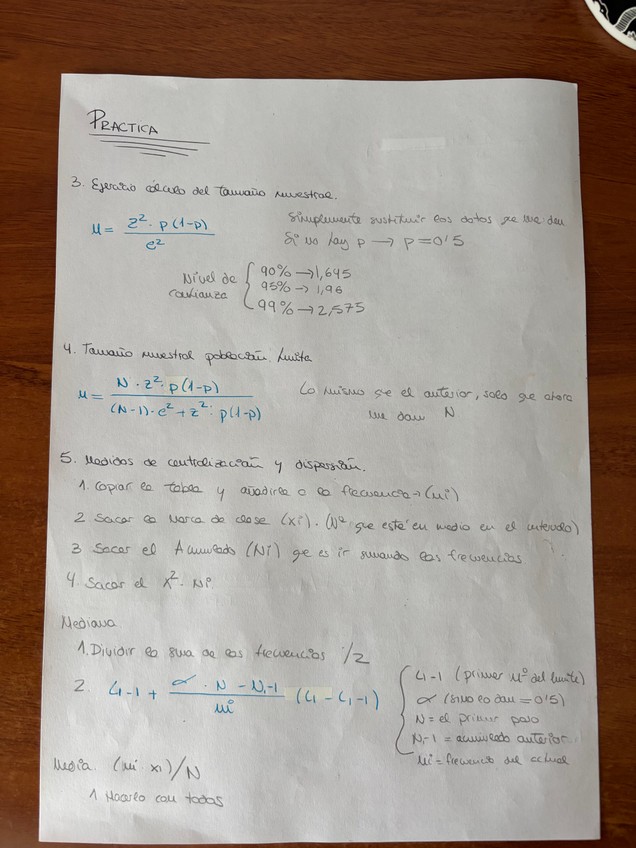 PRACTICA
3. Ejercicio cálculo del tamaño muestral.
n = Z²· p(1-p) / e²
Simplemente sustituir los datos qe me den
Si no hay p → p=0'5
Nivel de confianza { 90% → 1,645
95% → 1,96
99% → 2,575
4. Tamaño muestral población finita
n = N · Z²· p(1-p) / (N-1)·e²+z²· p(1-p)
Lo mismo qe el anterior, solo qe ahora
me dan N
5. Medidas de centralización y dispersión.
1. Copiar la tabla y añadirle a la frecuencia → (ni)
2 Sacar la Marca de clase (xi). (Nº que esté en medio en el intervalo)
3 Sacar el Acumulado (Ni) qe es ir sumando las frecuencias
4. Sacar el x²· Ni.
Mediana
1. Dividir la suma de las frecuencias /2
2. Li-1 + ∝ · N - Ni-1 / ni (Li - Li-1)
{ Li-1 (primer nº del límite)
∝ (sino lo dan = 0'5)
N = el primer paso
Ni-1 = acumulado anterior
ni = frecuencia del actual
Media. (ni xi)/N
1 Hacerlo con todas